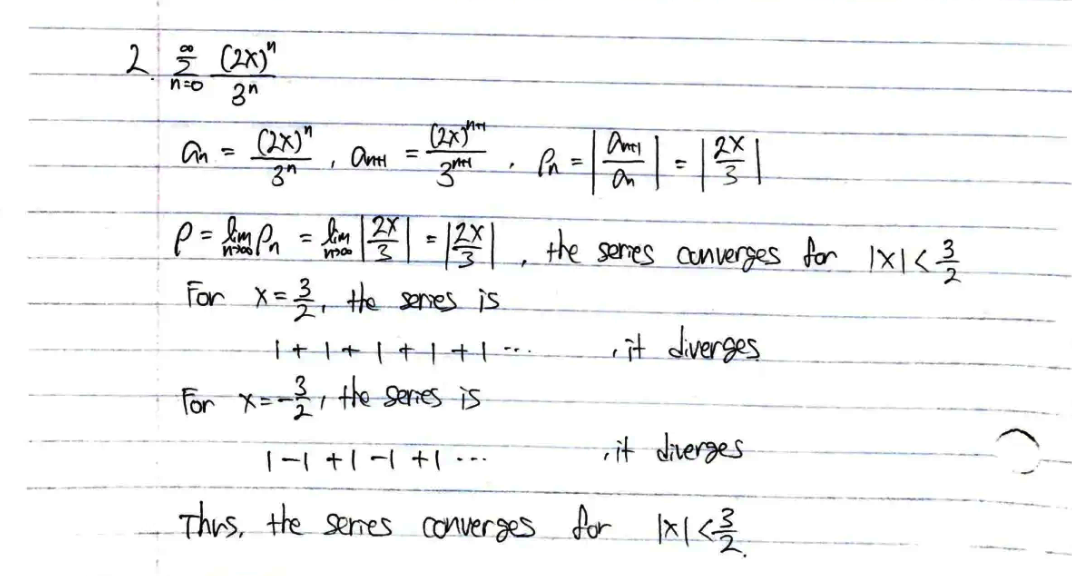 2. $\sum_{n=0}^{\infty} \frac{(2x)^n}{3^n}$
$a_n = \frac{(2x)^n}{3^n}$, $a_{n+1} = \frac{(2x)^{n+1}}{3^{n+1}}$, $\rho_n = \left|\frac{a_{n+1}}{a_n}\right| = \left|\frac{2x}{3}\right|$
$\rho = \lim_{n \to \infty} \rho_n = \lim_{n \to \infty} \left|\frac{2x}{3}\right| = \left|\frac{2x}{3}\right|$, the series converges for $|x| < \frac{3}{2}$
For $x = \frac{3}{2}$, the series is
$1 + 1 + 1 + 1 + 1 \cdots$ , it diverges
For $x = -\frac{3}{2}$, the series is
$1 - 1 + 1 - 1 + 1 \cdots$ , it diverges
Thus, the series converges for $|x| < \frac{3}{2}$.